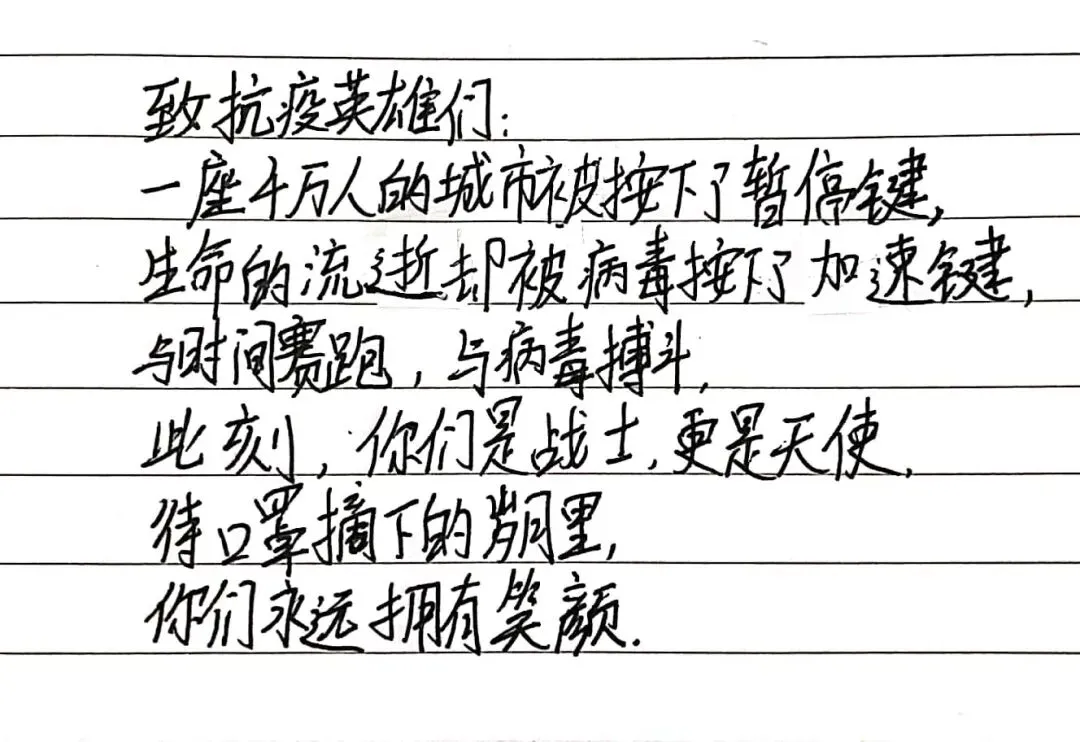 致抗疫英雄们:
一座千万人的城市被按下了暂停键,
生命的流逝却被病毒按下了加速键,
与时间赛跑,与病毒搏斗,
此刻,你们是战士,更是天使,
待口罩摘下的岁月里,
你们永远拥有笑颜.